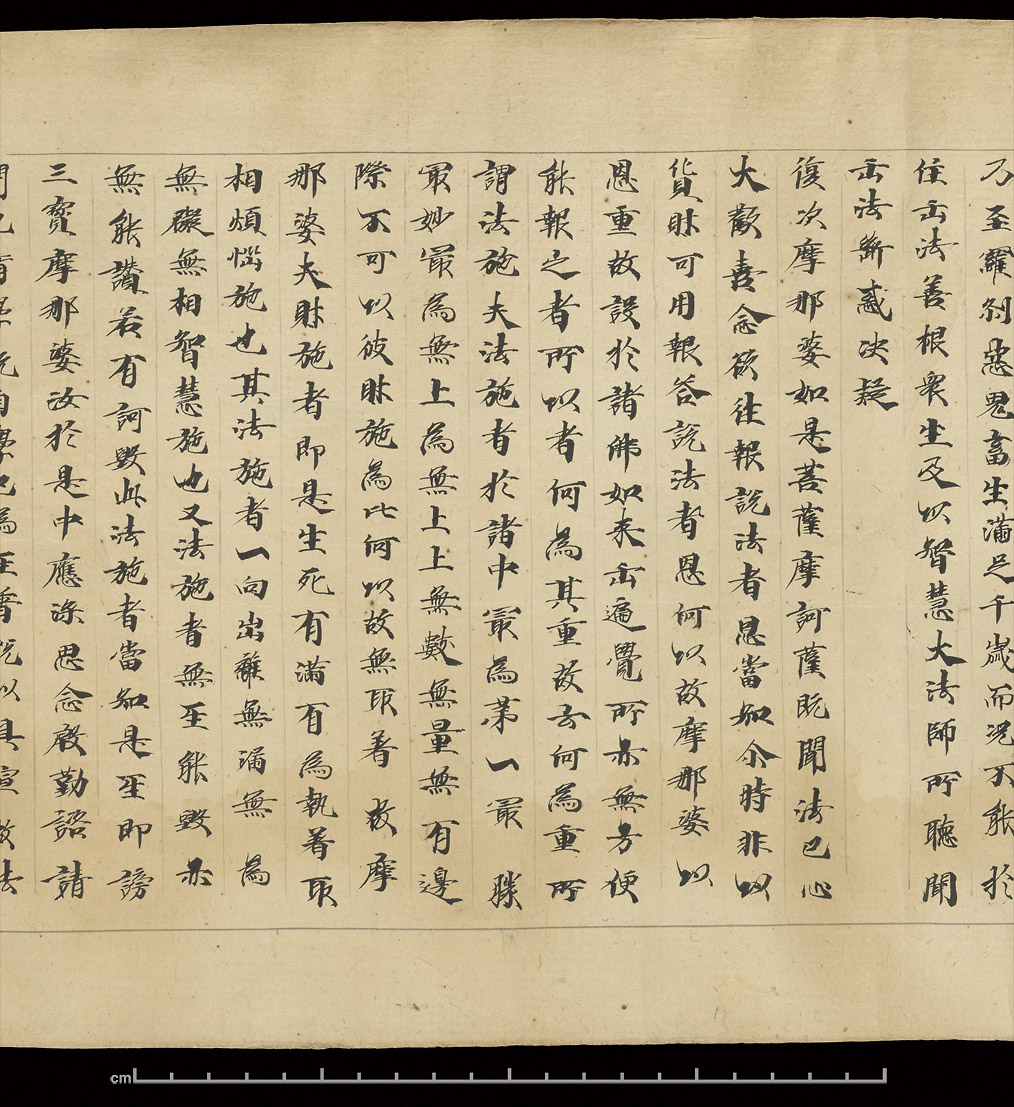 乃至羅刹惡鬼畜生滿足千歲而況不能於
住正法善根衆生及以智慧大法師所聽聞
正法斷惑决疑
復次摩那婆如是菩薩摩訶薩既聞法已心
大歡喜念欲往報説法者恩當知尒時非以
貨財可用報答説法者恩何以故摩那婆以
恩重故設於諸佛如来正遍覺所亦無方便
能報之者所以者何為其重故云何為重所
謂法施夫法施者於諸中最為第一最勝
最妙最為無上為無上上無數無量無有邊
際不可以彼財施為比何以故無取著故摩
那婆夫財施者即是生死有滿有為執著取
相煩惱施也其法施者一向出離無漏無為
無礙無相智慧施也又法施者無至能毀亦
無能讃若有訶毀此法施者當知是至即謗
三寶摩那婆汝於是中應深思念慇勤諮請